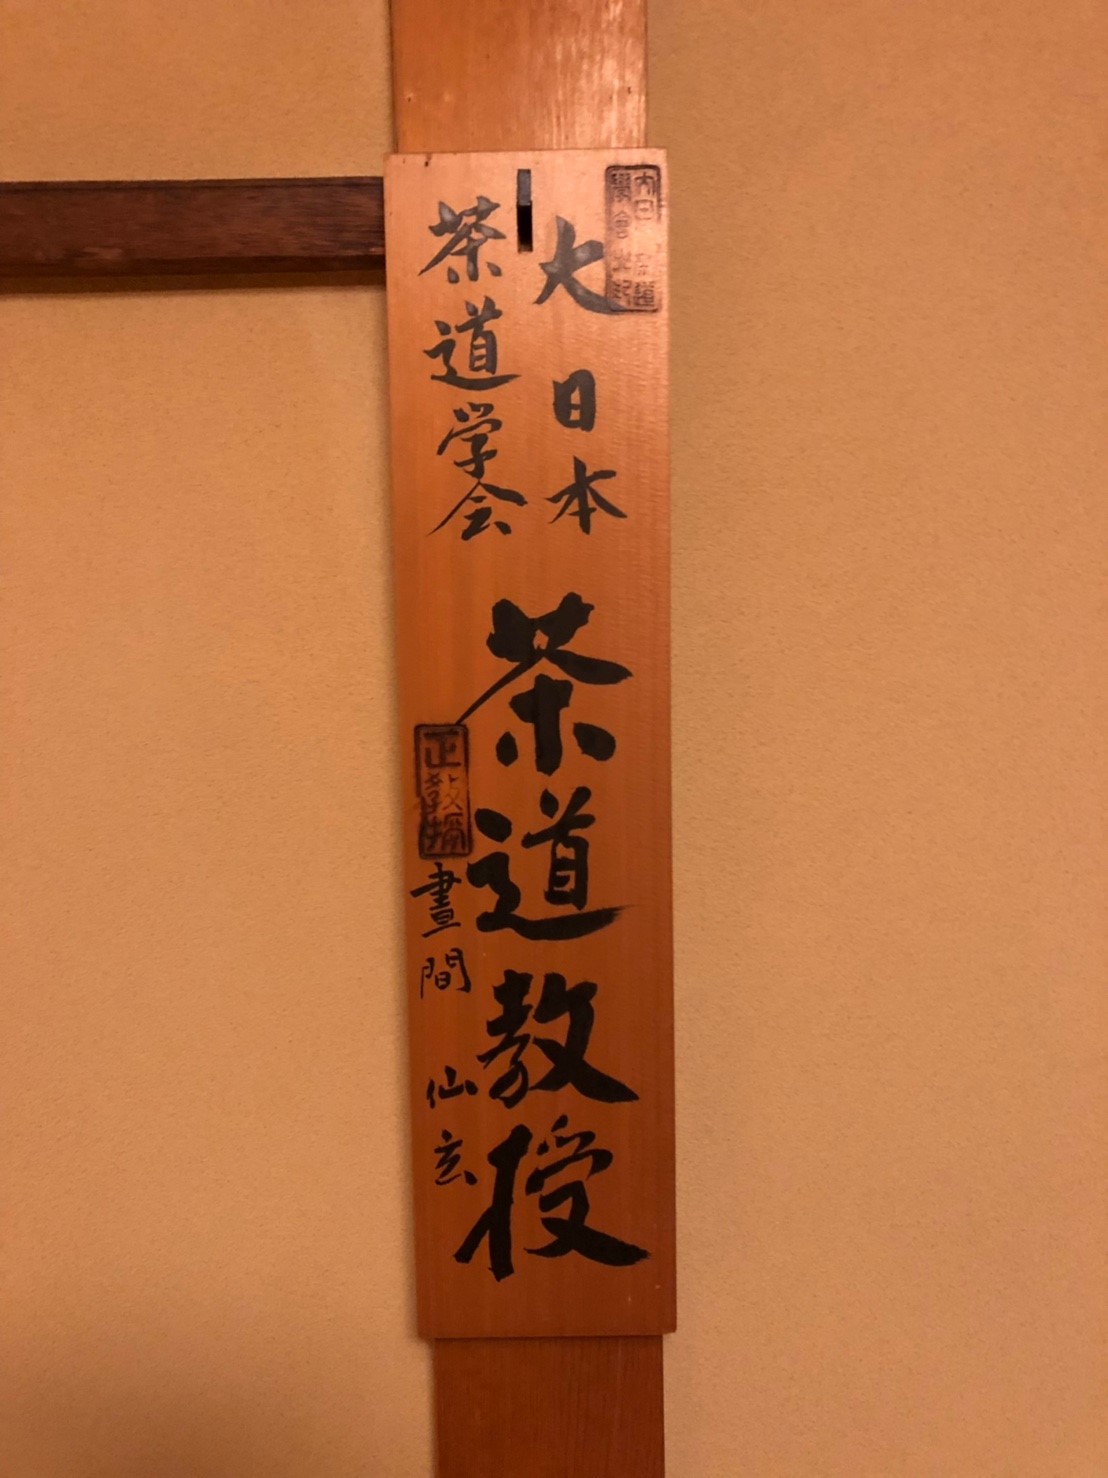 大日本
茶道学会
茶道教授
正教授
晝間 仙玄